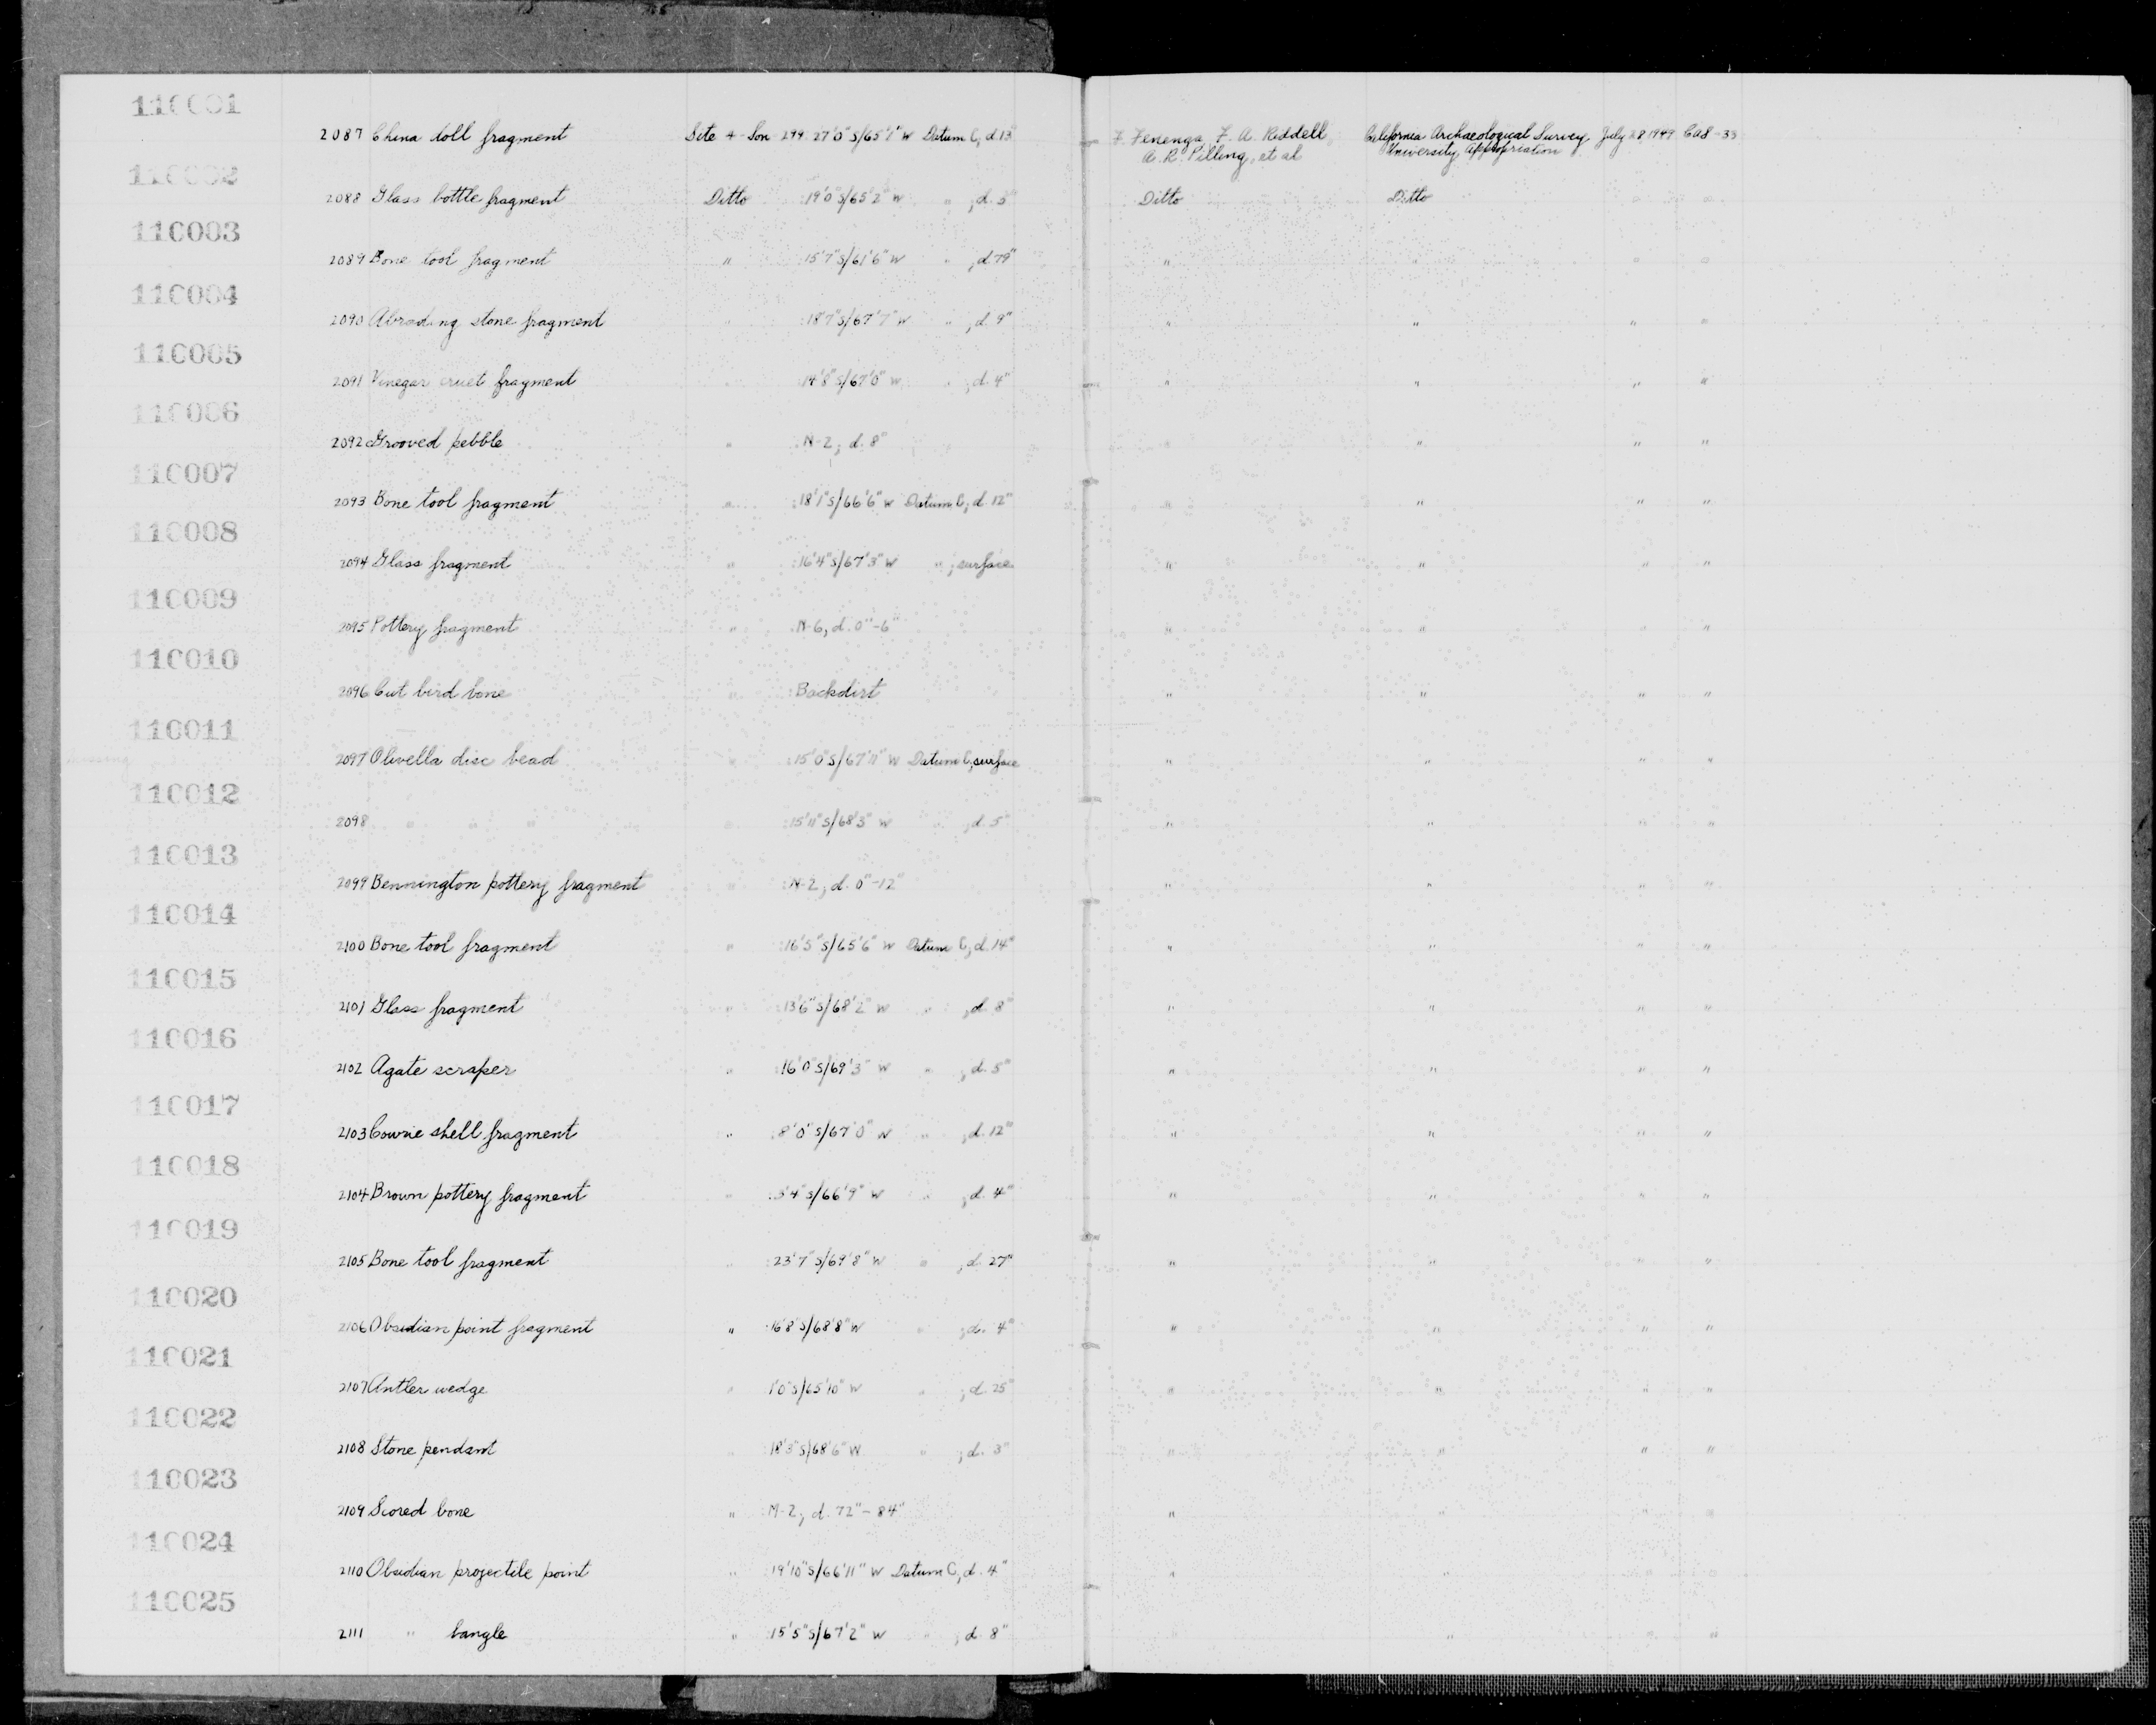 110001
2087 China doll fragment Site 4-Son-299 27'0"S/65'1"W Datum C, d.13" F. Fenenga, F. A. Riddell, California Archaeological Survey July 28, 1949 CAS-33
A. R. Pilling, et al University Appropriation
110002
2088 Glass bottle fragment Ditto :19'0"S/65'2"W " ; d. 5" Ditto Ditto " "
110003
2089 Bone tool fragment " 15'7"S/61'6"W " ; d. 79" " " " "
110004
2090 Abrading stone fragment " :18'7"S/67'7"W " ; d. 9" " " " "
110005
2091 Vinegar cruet fragment " :14'8"S/67'0"W " ; d. 4" " " " "
110006
2092 Grooved pebble " :N-2; d. 8" " " "
110007
2093 Bone tool fragment " :18'1"S/66'6"W Datum C, d. 12" " " " "
110008
2094 Glass fragment " :16'4"S/67'3"W " ; surface " " " "
110009
2095 Pottery fragment " :N-6, d. 0"-6" " " " "
110010
2096 Cut bird bone " :Backdirt " " " "
110011
missing 2097 Olivella disc bead " :15'0"S/67'11"W Datum C, surface " " " "
110012
2098 " " " " :15'11"S/68'3"W " ; d. 5" " " " "
110013
2099 Bennington pottery fragment " :N-2; d. 0"-12" " " " "
110014
2100 Bone tool fragment " :16'5"S/65'6"W Datum C, d. 14" " " " "
110015
2101 Glass fragment " :13'6"S/68'2"W " ; d. 8" " " " "
110016
2102 Agate scraper " :16'0"S/69'3"W " ; d. 5" " " " "
110017
2103 Cowrie shell fragment " :8'0"S/67'0"W " ; d. 12" " " " "
110018
2104 Brown pottery fragment " :3'4"S/66'9"W " ; d. 4" " " " "
110019
2105 Bone tool fragment " :23'7"S/69'8"W " ; d. 27" " " " "
110020
2106 Obsidian point fragment " :16'8"S/68'8"W " ; d. 4" " " " "
110021
2107 Antler wedge " 1'0"S/65'10"W " ; d. 25" " " " "
110022
2108 Stone pendant " :18'3"S/68'6"W " ; d. 3" " " " "
110023
2109 Scored bone " :M-2; d. 72"-84" " " " "
110024
2110 Obsidian projectile point " :19'10"S/66'11"W Datum C, d. 4" " " " "
110025
2111 " bangle " :15'5"S/67'2"W " ; d. 8" " " "